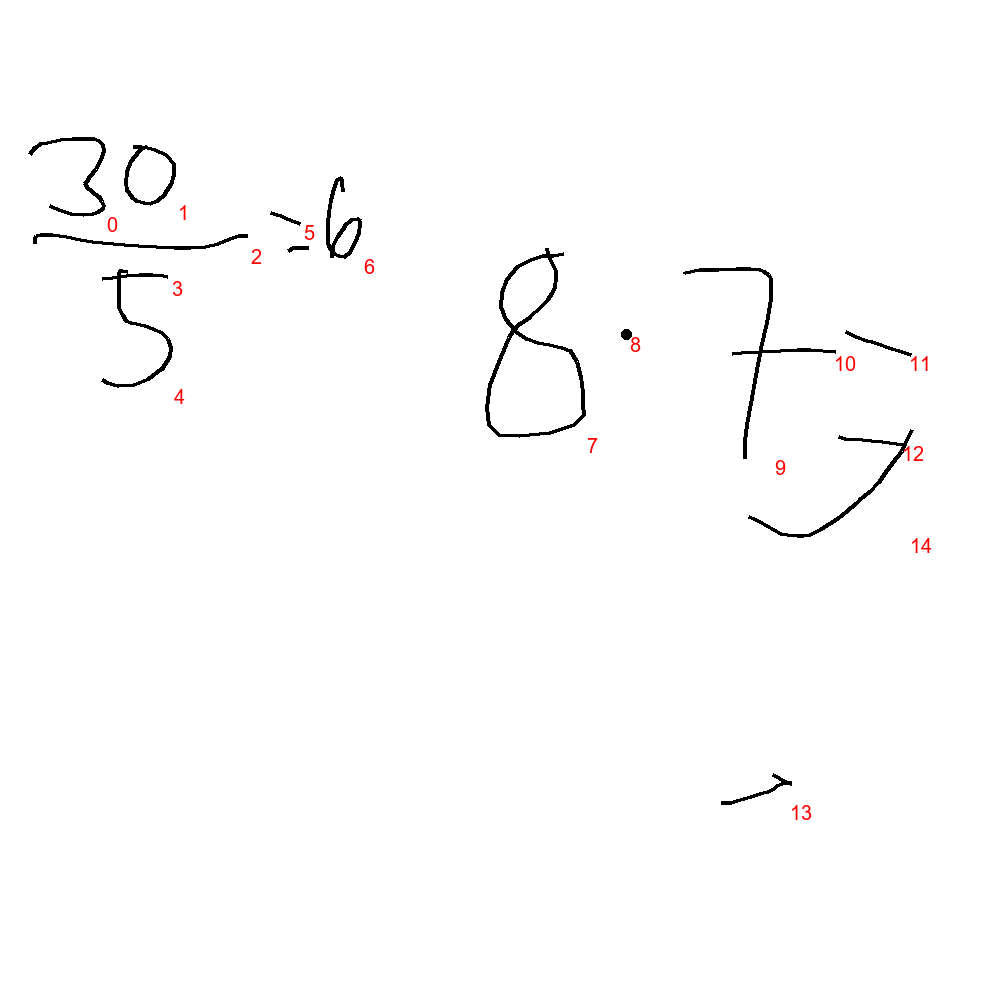 30/5 = 6
8 · 7 =
0 1 2 3 4 5 6 7 8 9 10 11 12 13 14